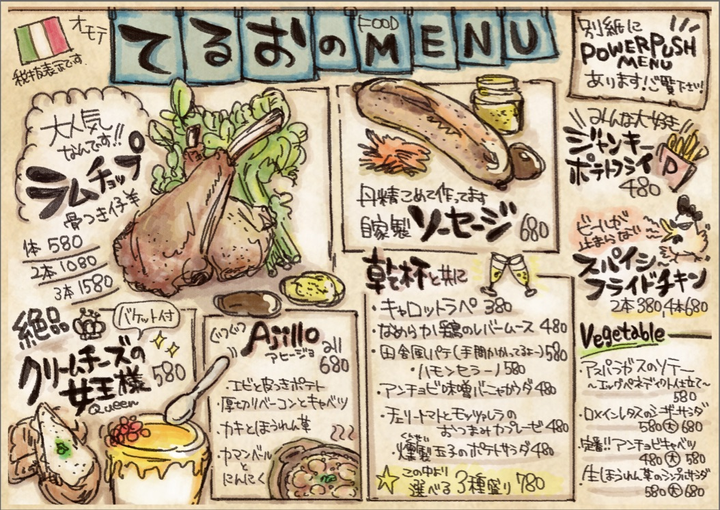 オモテ
税抜表示です。
てるおの FOOD MENU
別紙に
POWERPUSH
MENU
あります!ご覧下さい!
大人気
なんです!!
ラムチョップ
骨つき仔羊
1本 580
2本 1080
3本 1580
丹精こめて作ってます
自家製 ソーセージ 680
みんな大好き
ジャンキー
ポテトフライ
480
ビールが
止まらない
スパイシー
フライドチキン
2本380,4本680
絶品
バケット付
クリームチーズの
女王様 580
Queen
ぐつぐつ
Ajillo all
アヒージョ 680
・エビと皮つきポテト
・厚切りベーコンとキャベツ
・カキとほうれん草
・カマンベール
と
にんにく
乾杯と共に
・キャロットラペ 380
・なめらか鶏のレバームース 480
・田舎風パテ(手間かかってるよー) 580
・ハモンセラーノ 580
・アンチョビ味噌バーニャカウダ 480
・チェリートマトとモッツァレラの
おつまみカプレーゼ 480
くんせい
・燻製玉子のポテトサラダ 480
この中より
選べる3種盛り 780
Vegetable
アスパラガスのソテー
〜エッグベネディクト仕立て〜
580
・DXインレタスのシーザーサラダ
580 大 680
・定番!!アンチョビキャベツ
480 大 580
・生ほうれん草のシンプルサラダ
580 大 680